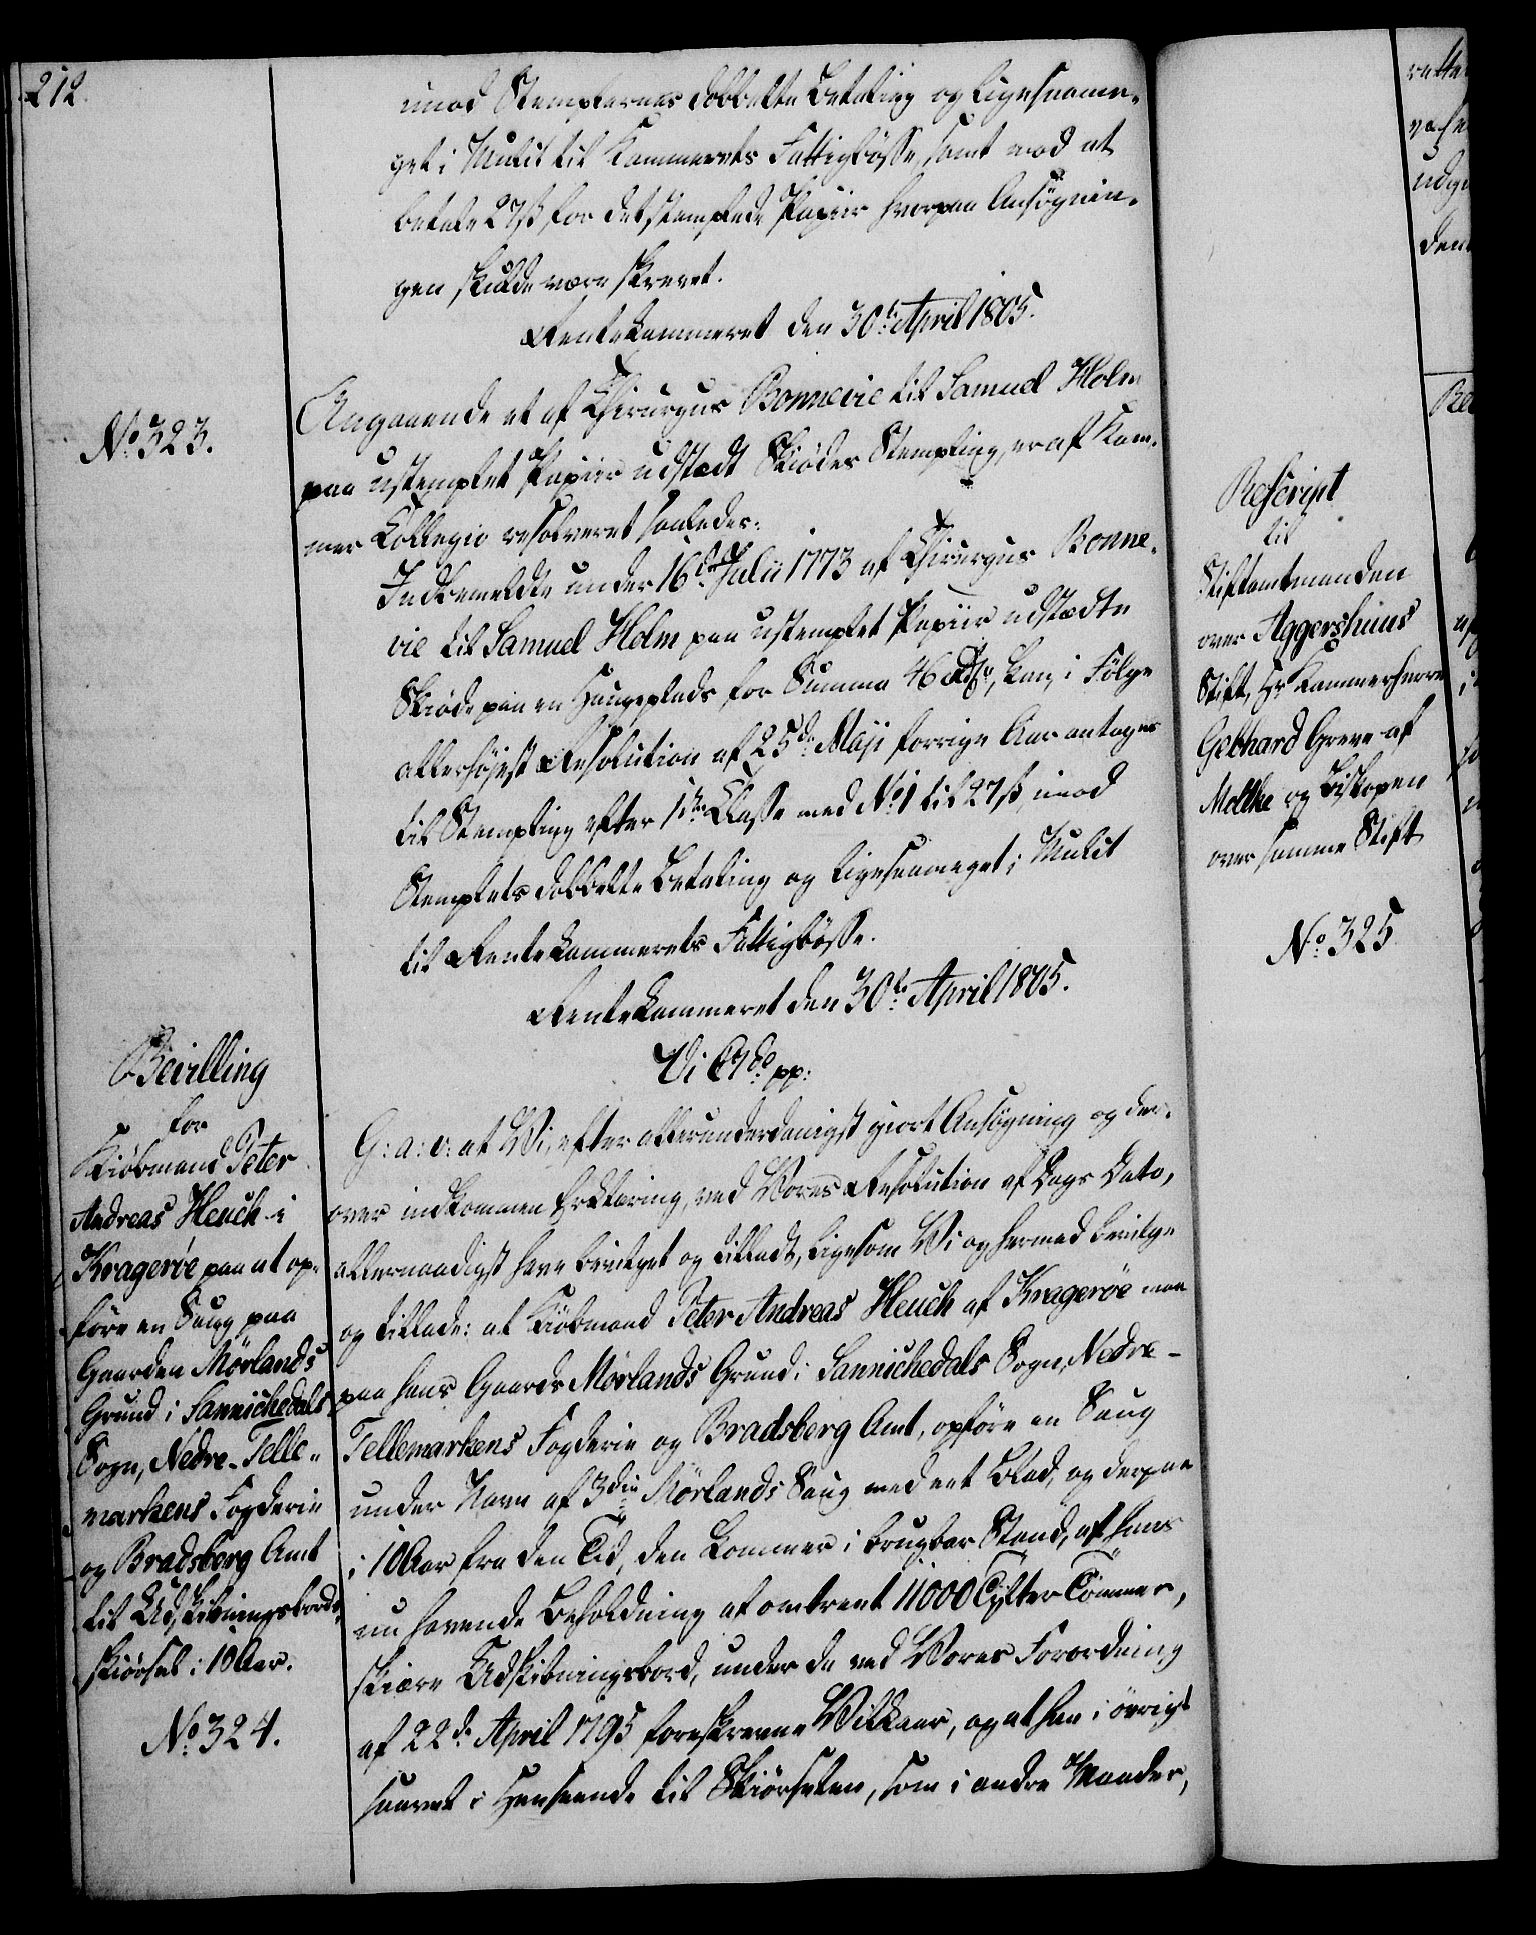 212.
imod Stemplernes dobbelte Betaling og ligesaame-
get i Mulct til Kammerets Fattigbösse, samt mod at
betale 27 ß for det stemplede Papiir hvorpaa Ansögnin-
gen skulde være skrevet.
Rentekammeret den 30te April 1805.
No 323.
Angaaende et af Chirurgus Bonnevie til Samuel Holm
paa ustemplet Papiir udstædt Skiödes Stempling, er af Kam-
mer Collegio resolveret saaledes:
Indbemeldte under 16de Julii 1773 af Chirurgus Bonne-
vie til Samuel Holm paa ustemplet Papiir udstædte
Skiöde paa en Haugeplads for Summa 46 Rdlr, kan i Fölge
allerhöjest Resolution af 25de Maji forrige Aar antages
til Stempling efter 1ste Classe med No 1 til 27 ß imod
Stemplets dobbelte Betaling og ligesaameget i Mulct
til Rentekammerets Fattigbösse.
Rentekammeret den 30te April 1805.
Bevilling
for
Kiöbmand Peter
Andreas Heuch i
Kragerøe paa at op-
före en Saug paa
Gaarden Mørlands
Grund i Sannichedals
Sogn, Nedre-Telle-
markens Fogderie
og Bradsberg Amt
til Udskibningsbords
Skiörsel i 10 Aar.
No 324.
Vi C 7de pp:
G: a: v: at Vi, efter allerunderdanigst giort Ansögning og der-
over indkommen Erklæring, ved Vores Resolution af Dags Dato,
allernaadigst have bevilget og tilladt, ligesom Vi og hermed bevilge
og tillade: at Kiöbmand Peter Andreas Heuch af Kragerøe maa
paa hans Gaards Mørlands Grund i Sannichedals Sogn, Nedre-
Tellemarkens Fogderie og Bradsberg Amt, opföre en Saug
under Navn af 3die Mörlands Saug med eet Blad, og derpaa
i 10 Aar fra den Tid, den kommer i brugbar Stand, af hans
nu havende Beholdning af omtrent 11000 Tylter Tömmer,
skiære Udskibningsbord, under de ved Vores Forordning
af 22de April 1795 foreskrevne Vilkaar, og at han i övrigt
saavel i Henseende til Skiörselen, som i andre Maader,
Rescript
til
Stiftamtmanden
over Aggershuus
Stift, Hr Kammerherre
Gebhard Greve af
Moltke og Biskopen
over samme Stift
No 325